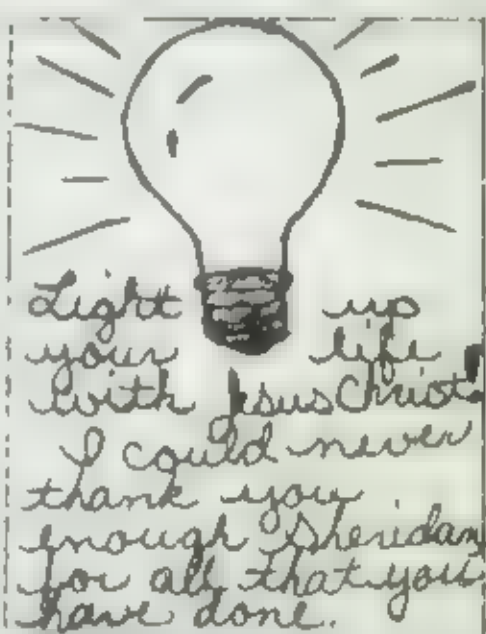 Light up
your life
with Jesus Christ!
I could never
thank you
enough Sheridan
for all that you
have done.